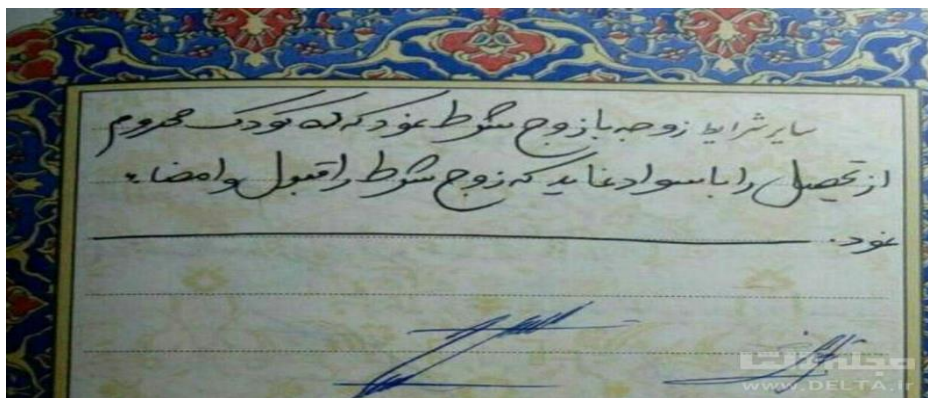 سایر شرایط زوجه با زوج شرط نمود که کودک محروم
از تحصیل را باسواد نماید که زوج شرط را قبول و امضاء
نمود.
مجله دلتا
WWW.DELTA.ir